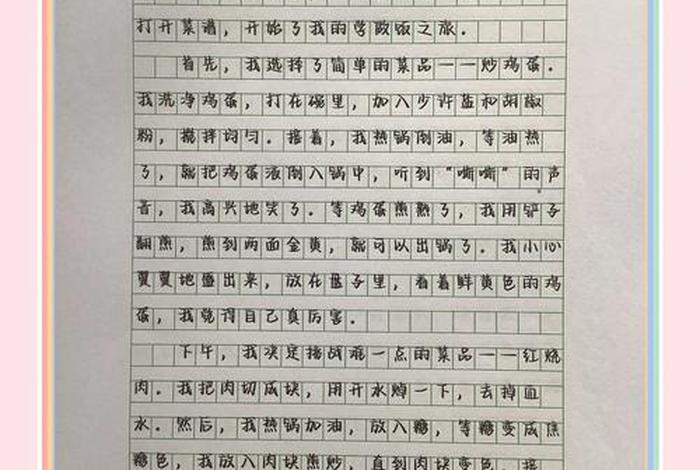 打开菜谱，开始了我的学做饭之旅．
首先，我选择了简单的菜品——炒鸡蛋．
我洗净鸡蛋，打在碗里，加入少许盐和胡椒
粉，搅拌均匀．接着，我热锅倒油，等油热
了，就把鸡蛋液倒入锅中，听到“嘶嘶”的声
音，我高兴地笑了．等鸡蛋煎熟了，我用铲子
翻煎，煎到两面金黄，就可以出锅了．我小心
翼翼地盛出来，放在盘子里，看着鲜黄色的鸡
蛋，我觉得自己真厉害．
下午，我决定挑战难一点的菜品——红烧
肉．我把肉切成块，用开水焯一下，去掉血
水．然后，我热锅加油，放入糖，等糖变成焦
糖色，我放入肉块煎炒，直到肉块变色．接